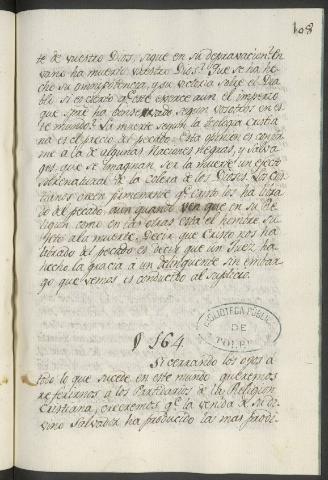 108
te de vuestro Dios, sigue en su depravacion? En
vano ha muerto vuestro Dios? Que se ha he-
cho su omnipotencia, y su victoria sobre el Dia-
blo si es cierto qe. este exerce aun el imperio
que spre. ha conservado segun vosotros en es-
te mundo? La muerte segun la teologia Cristia-
na es el precio del pecado. Esta opinion es confor-
me a la de algunas naciones negras, y salva-
ges, que se imaginan ser la muerte un efecto
sobrenatural de la colera de los Dioses. Los Cris-
tianos creen firmemente qe. Cristo los ha libra-
do del pecado, aun quando ven que en su Re-
ligion como en las otras está el hombre su-
jeto a la muerte. Decir que Cristo nos ha
librado del pecado es decir que un Juez ha
hecho la gracia a un delinquente sin embar-
go que vemos es conducido al suplicio.
BIBLIOTECA PUBLICA
DE
TOLEDO
§ 164.
Si cerrando los ojos a
todo lo que sucede en este mundo queremos
referirnos a los Partidarios de la Religion
Cristiana, creeremos qe. la venida de su di-
vino Salvador ha producido las mas prodi-